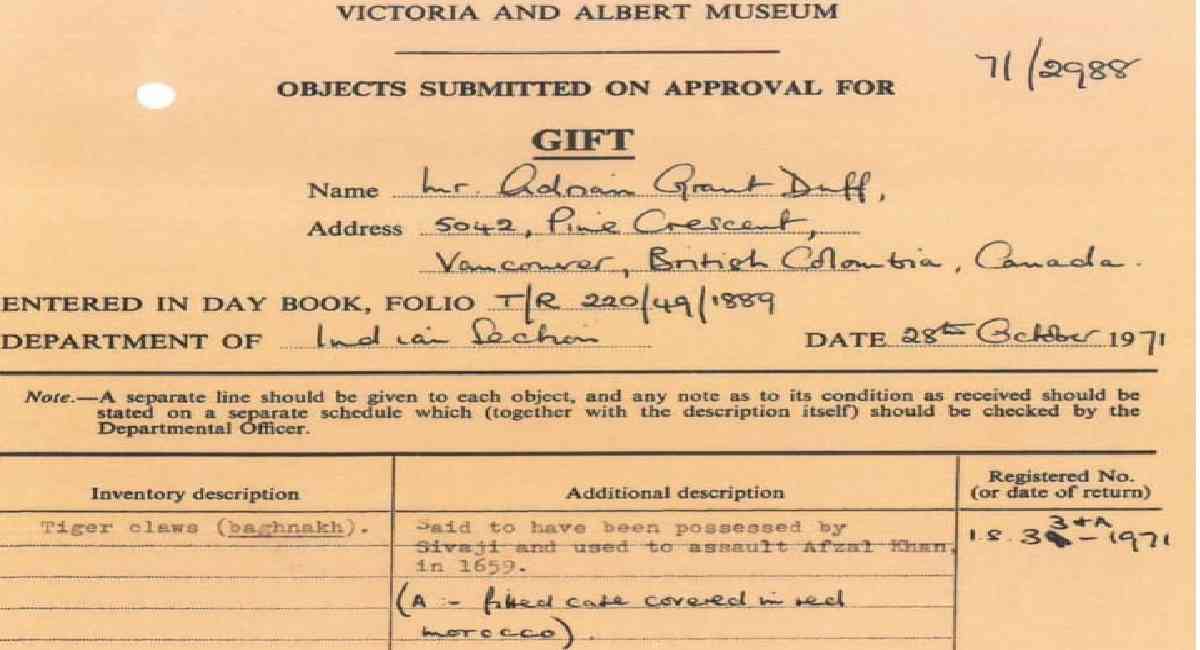 VICTORIA AND ALBERT MUSEUM
71/2988
OBJECTS SUBMITTED ON APPROVAL FOR
GIFT
Name Mr. Adrian Grant Duff,
Address 5042, Pine Crescent,
Vancouver, British Colombia, Canada.
ENTERED IN DAY BOOK, FOLIO T/R 220/49/1889
DEPARTMENT OF Indian Section DATE 28th October 1971
Note.—A separate line should be given to each object, and any note as to its condition as received should be
stated on a separate schedule which (together with the description itself) should be checked by the
Departmental Officer.
Inventory description Additional description Registered No.
(or date of return)
Tiger claws (baghnakh). Said to have been possessed by
Sivaji and used to assault Afzal Khan,
in 1659.
I.S. 33+A-1971
(A :- fitted case covered in red
morocco).